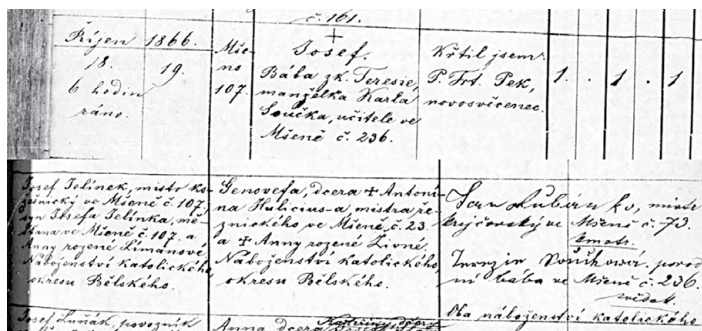 č. 161.
Říjen 1866.
18. 19.
6 hodin
ráno.
Mše-
no
107.
Josef.
Bába zk. Teresie,
manželka Karla
Součka, učitele ve
Mšeně č. 236.
Křtil jsem
P. Frt. Pek,
novosvěcenec.
1. . 1. . 1
Josef Jelínek, mistr ko-
želnický ve Mšeně č. 107,
syn Josefa Jelínka, mě-
šťana ve Mšeně č. 107. a
Anny rozené Límanové,
Náboženství katolického,
okresu Bělského.
Genovefa, dcera + Antoní-
na Hulicius-a, mistra ře-
znického ve Mšeně, č. 23.
a + Anny rozené Livné.
Náboženství katolického,
okresu Bělského.
Jan mistr
krejčovský ve Mšeně č. 73.
kmotr.
Terezie porod
ní bába ve Mšeně č. 236.
svědek.
Oba náboženství katolického
Josef Luňák, povozník
Anna dcera